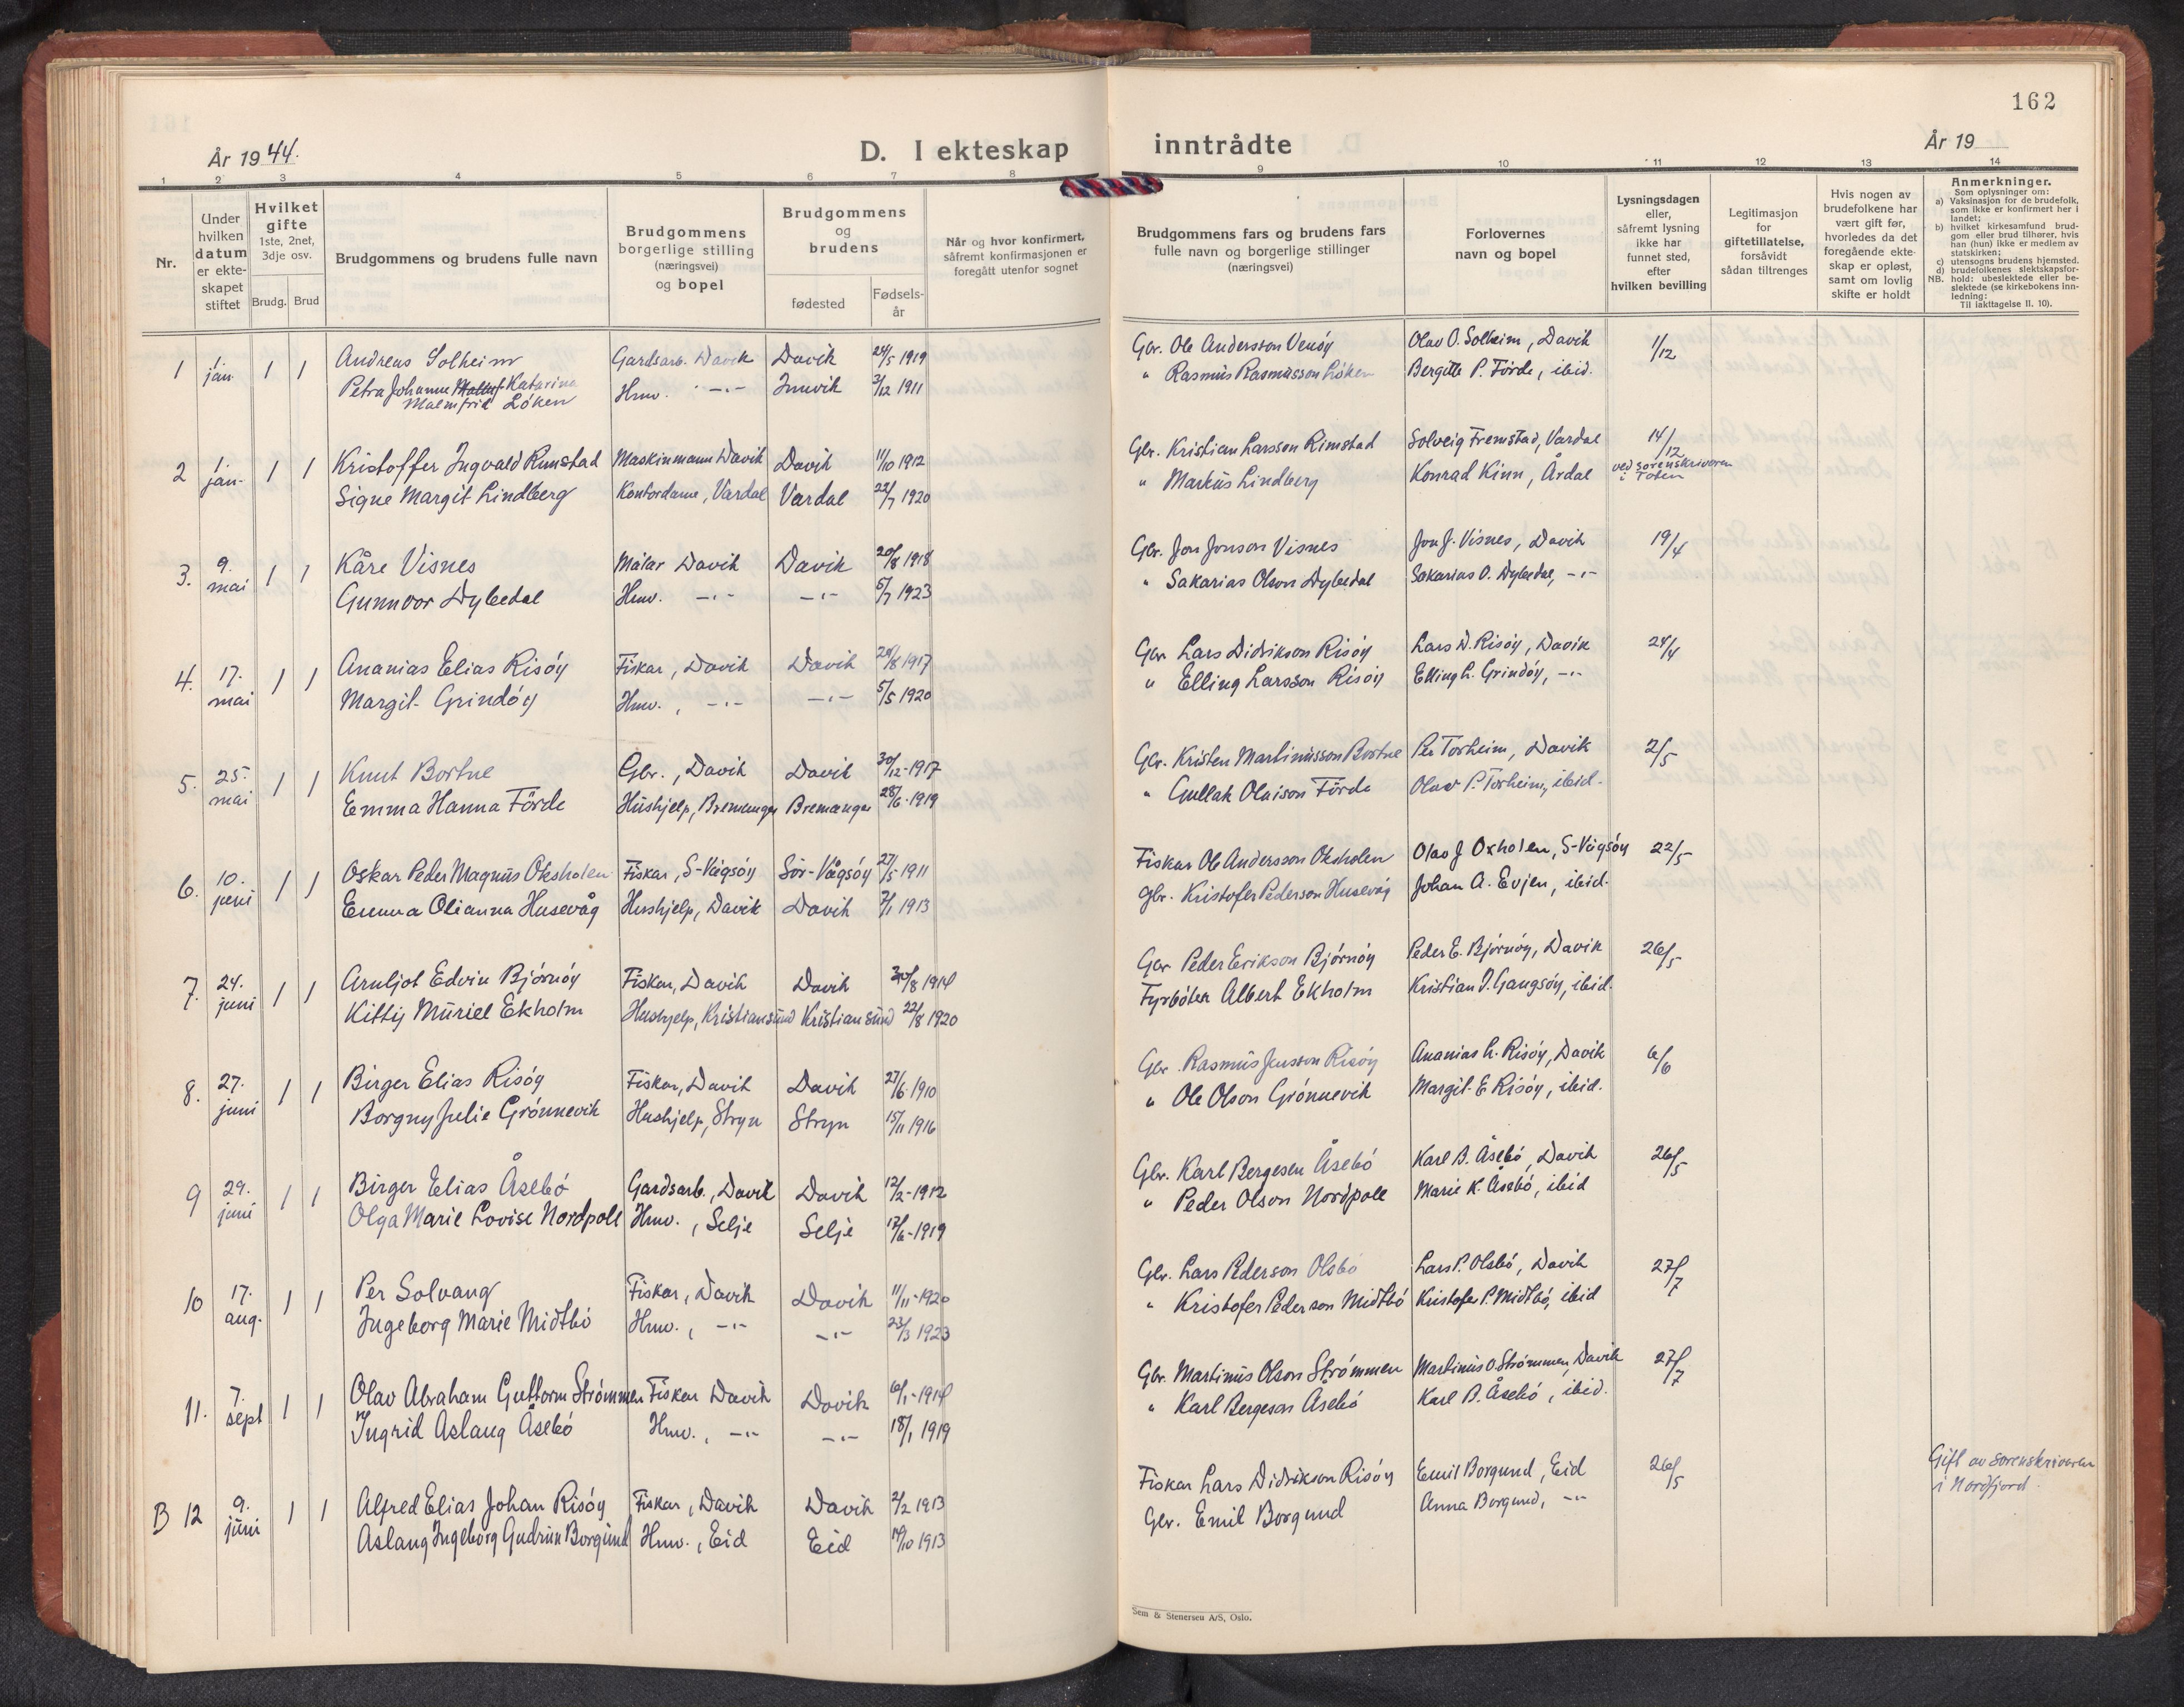 162
År 1944.
D. I ekteskap inntrådte
År 19
1 2 3 4 5 6 7 8 9 10 11 12 13 14
Nr.
Under hvilken datum er ekteskapet stiftet
Hvilket gifte
1ste, 2net, 3dje osv.
Brudg. Brud
Brudgommens og brudens fulle navn
Brudgommens borgerlige stilling (næringsvei) og bopel
Brudgommens og brudens
fødested
Fødselsår
Når og hvor konfirmert, såfremt konfirmasjonen er foregått utenfor sognet
Brudgommens fars og brudens fars fulle navn og borgerlige stillinger (næringsvei)
Forlovernes navn og bopel
Lysningsdagen eller, såfremt lysning ikke har funnet sted, efter hvilken bevilling
Legitimasjon for giftetillatelse, forsåvidt sådan tiltrenges
Hvis nogen av brudefolkene har vært gift før, hvorledes da det foregående ekteskap er opløst, samt om lovlig skifte er holdt
Anmerkninger.
Som oplysninger om:
a) Vaksinasjon for de brudefolk, som ikke er konfirmert her i landet;
b) hvilket kirkesamfund brudgom eller brud tilhører, hvis han (hun) ikke er medlem av statskirken;
c) utensogns brudens hjemsted.
d) brudefolkenes slektskapsforhold: ubeslektede eller beslektede (se kirkebokens innledning;
NB.
Til iakttagelse II. 10).
1 1 jan. 1 1 Andreas Solheim Gardsarb. Davik Davik 24/5 1919 Glr. Ole Andersson Venöy Olav O. Solheim, Davik 1/12
Petra Johanne Katarina Malmfrid Löken Hmv. -"- Innvik 3/12 1911 " Rasmus Rasmusson Löken Bergitte P. Förde, ibid.
2 1 jan. 1 1 Kristoffer Ingvald Rimstad Maskinmann Davik Davik 11/10 1912 Gbr. Kristian Larsson Rimstad Solveig Fremstad, Vardal 14/12
Signe Margit Lindberg Kontordame, Vardal Vardal 22/7 1920 " Markus Lindberg Konrad Kinn, Årdal ved sorenskrivaren i Toten
3. 9. mai 1 1 Kåre Visnes Målar Davik Davik 20/8 1918 Gbr. Jon Jonson Visnes Jon J. Visnes, Davik 19/4
Gunnvor Dybedal Hmv. -"- -"- 5/7 1923 " Sakarias Olson Dybedal Sakarias O. Dybedal, -"-
4. 17. mai 1 1 Ananias Elias Risöy Fiskar, Davik Davik 20/8 1917 Gbr Lars Didrikson Risöy Lars D. Risöy, Davik 24/4
Margit Grindöy Hmv., -"- -"- 5/5 1920 " Elling Larsson Risöy Elling L. Grindöy, -"-
5. 25. mai 1 1 Knut Bortne Gbr., Davik Davik 30/12-1917 Gbr. Kristen Martinusson Bortne Per Torheim, Davik 2/5
Emma Hanna Förde Hushjelp, Bremanger Bremanger 28/6-1919 " Gullak Olaison Förde Olav P. Torheim, ibid.
6. 10. juni 1 1 Oskar Peder Magnus Oksholen Fiskar, S-Vågsöy Sör-Vågsöy 27/5 1911 Fiskar Ole Andersson Oksholen Olav J Oxholen, S-Vågsöy 22/5
Emma Olianna Husevåg Hushjelp, Davik Davik 7/1 1913 gbr. Kristofer Pederson Husevåg Johan A. Evjen, ibid.
7. 24. juni 1 1 Arnljot Edvin Björnöy Fiskar, Davik Davik 30/8 1914 Gbr Peder Erikson Björnöy Peder E. Björnöy, Davik 26/5
Kitty Muriel Ekholm Hushjelp, Kristiansund Kristiansund 22/8 1920 Fyrböter Albert Ekholm Kristian I. Gangsöy, ibid.
8. 27. juni 1 1 Birger Elias Risöy Fiskar, Davik Davik 27/6 1910 Gbr. Rasmus Jensson Risöy Ananias L. Risöy, Davik 6/6
Borgny Julie Grönnevik Hushjelp, Stryn Stryn 15/11 1916 " Ole Olson Grönnevik Margit E Risöy, ibid.
9 29. juni 1 1 Birger Elias Åsebö Gardsarb., Davik Davik 12/2-1912 Gbr. Karl Bergesen Åsebö Karl B. Åsebö, Davik 26/5
Olga Marie Lovise Nordpoll Hmv., Selje Selje 17/6-1919 " Peder Olson Nordpoll Marie K. Åsebö, ibid
10 17. aug. 1 1 Per Solvang Fiskar, Davik Davik 11/11-1920 Gbr. Lars Pederson Olsbö Lars P. Olsbö, Davik 27/7
Ingeborg Marie Midtbö Hmv., -"- -"- 23/3 1923 " Kristofer Pederson Midtbö Kristofer P. Midtbö, ibid
11. 7. sept 1 1 Olav Abraham Guttorm Strömmen Fiskar Davik Davik 6/1-1914 Gbr. Martinus Olson Strömmen Martinus O. Strömmen, Davik 27/7
Ingrid Aslaug Åsebö Hmv., -"- -"- 18/1 1919 " Karl Bergeson Åsebö Karl B. Åsebö, ibid.
B 12 9. juni 1 1 Alfred Elias Johan Risöy Fiskar, Davik Davik 2/2 1913 Fiskar Lars Didrikson Risöy Emil Borgund, Eid 26/5 Gift av sorenskrivaren i Nordfjord.
Aslaug Ingeborg Gudrun Borgund Hmv., Eid Eid 14/10 1913 Gbr. Emil Borgund Anna Borgund, -"-
Sem & Stenersen A/S, Oslo.